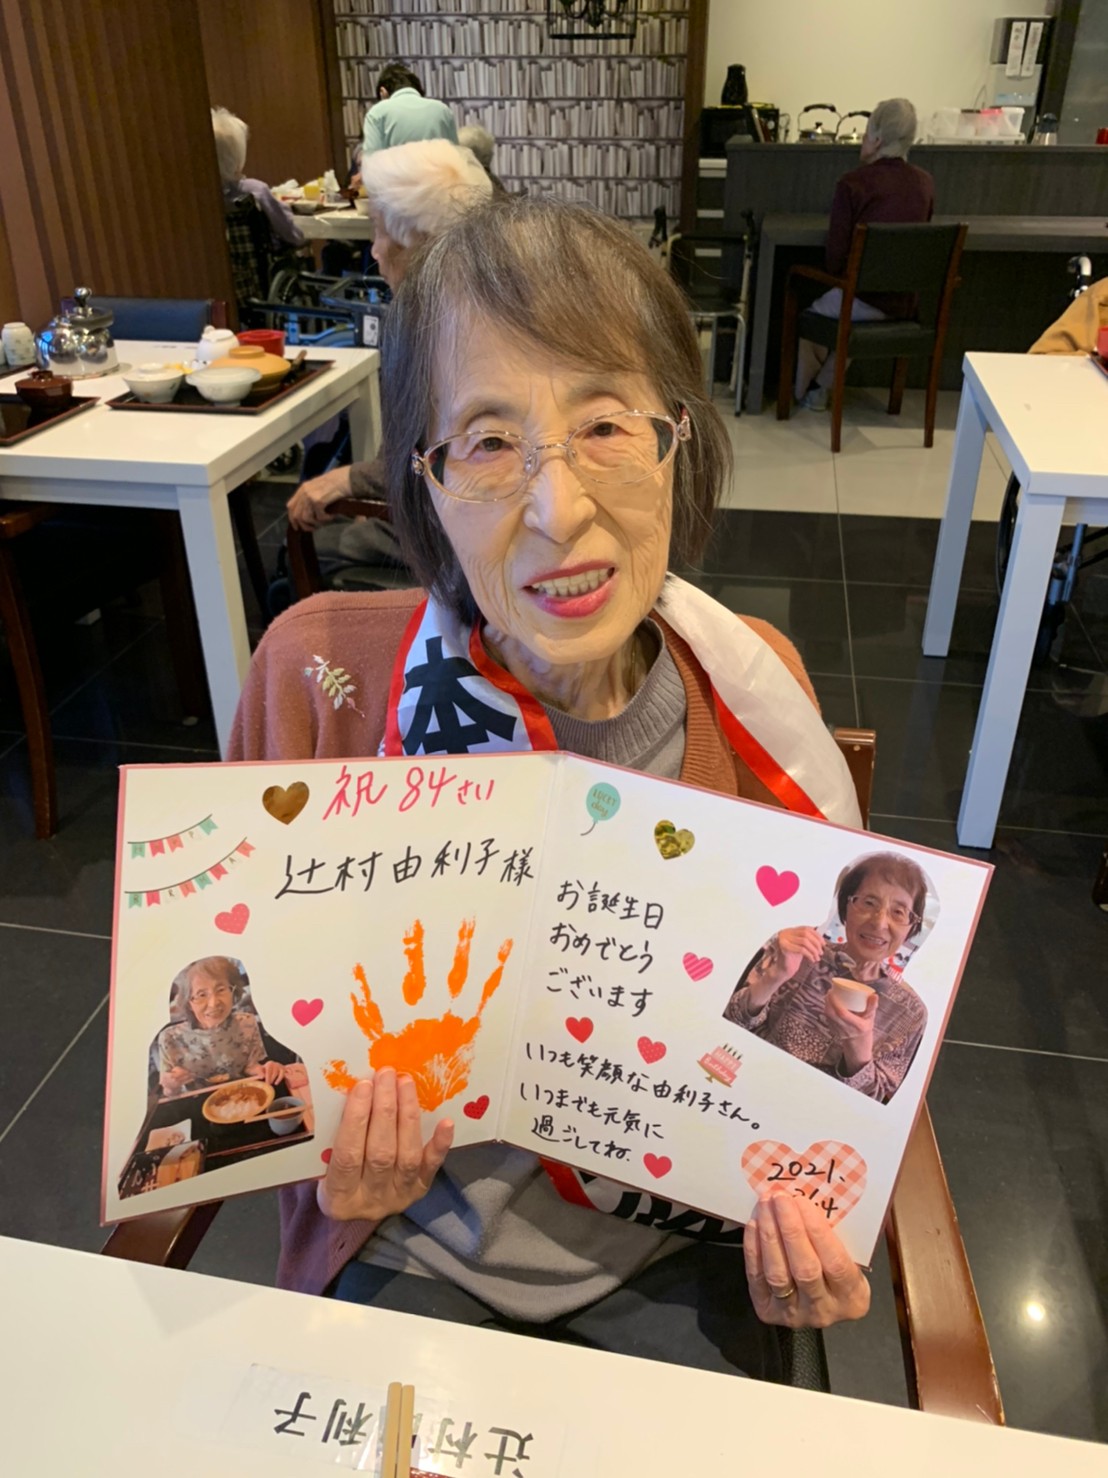 本
祝 84さい
辻村由利子様
LUCKY
day
お誕生日
おめでとう
ございます
いつも笑顔な由利子さん。
いつまでも元気に
過ごしてね、
2021.
辻村 利子